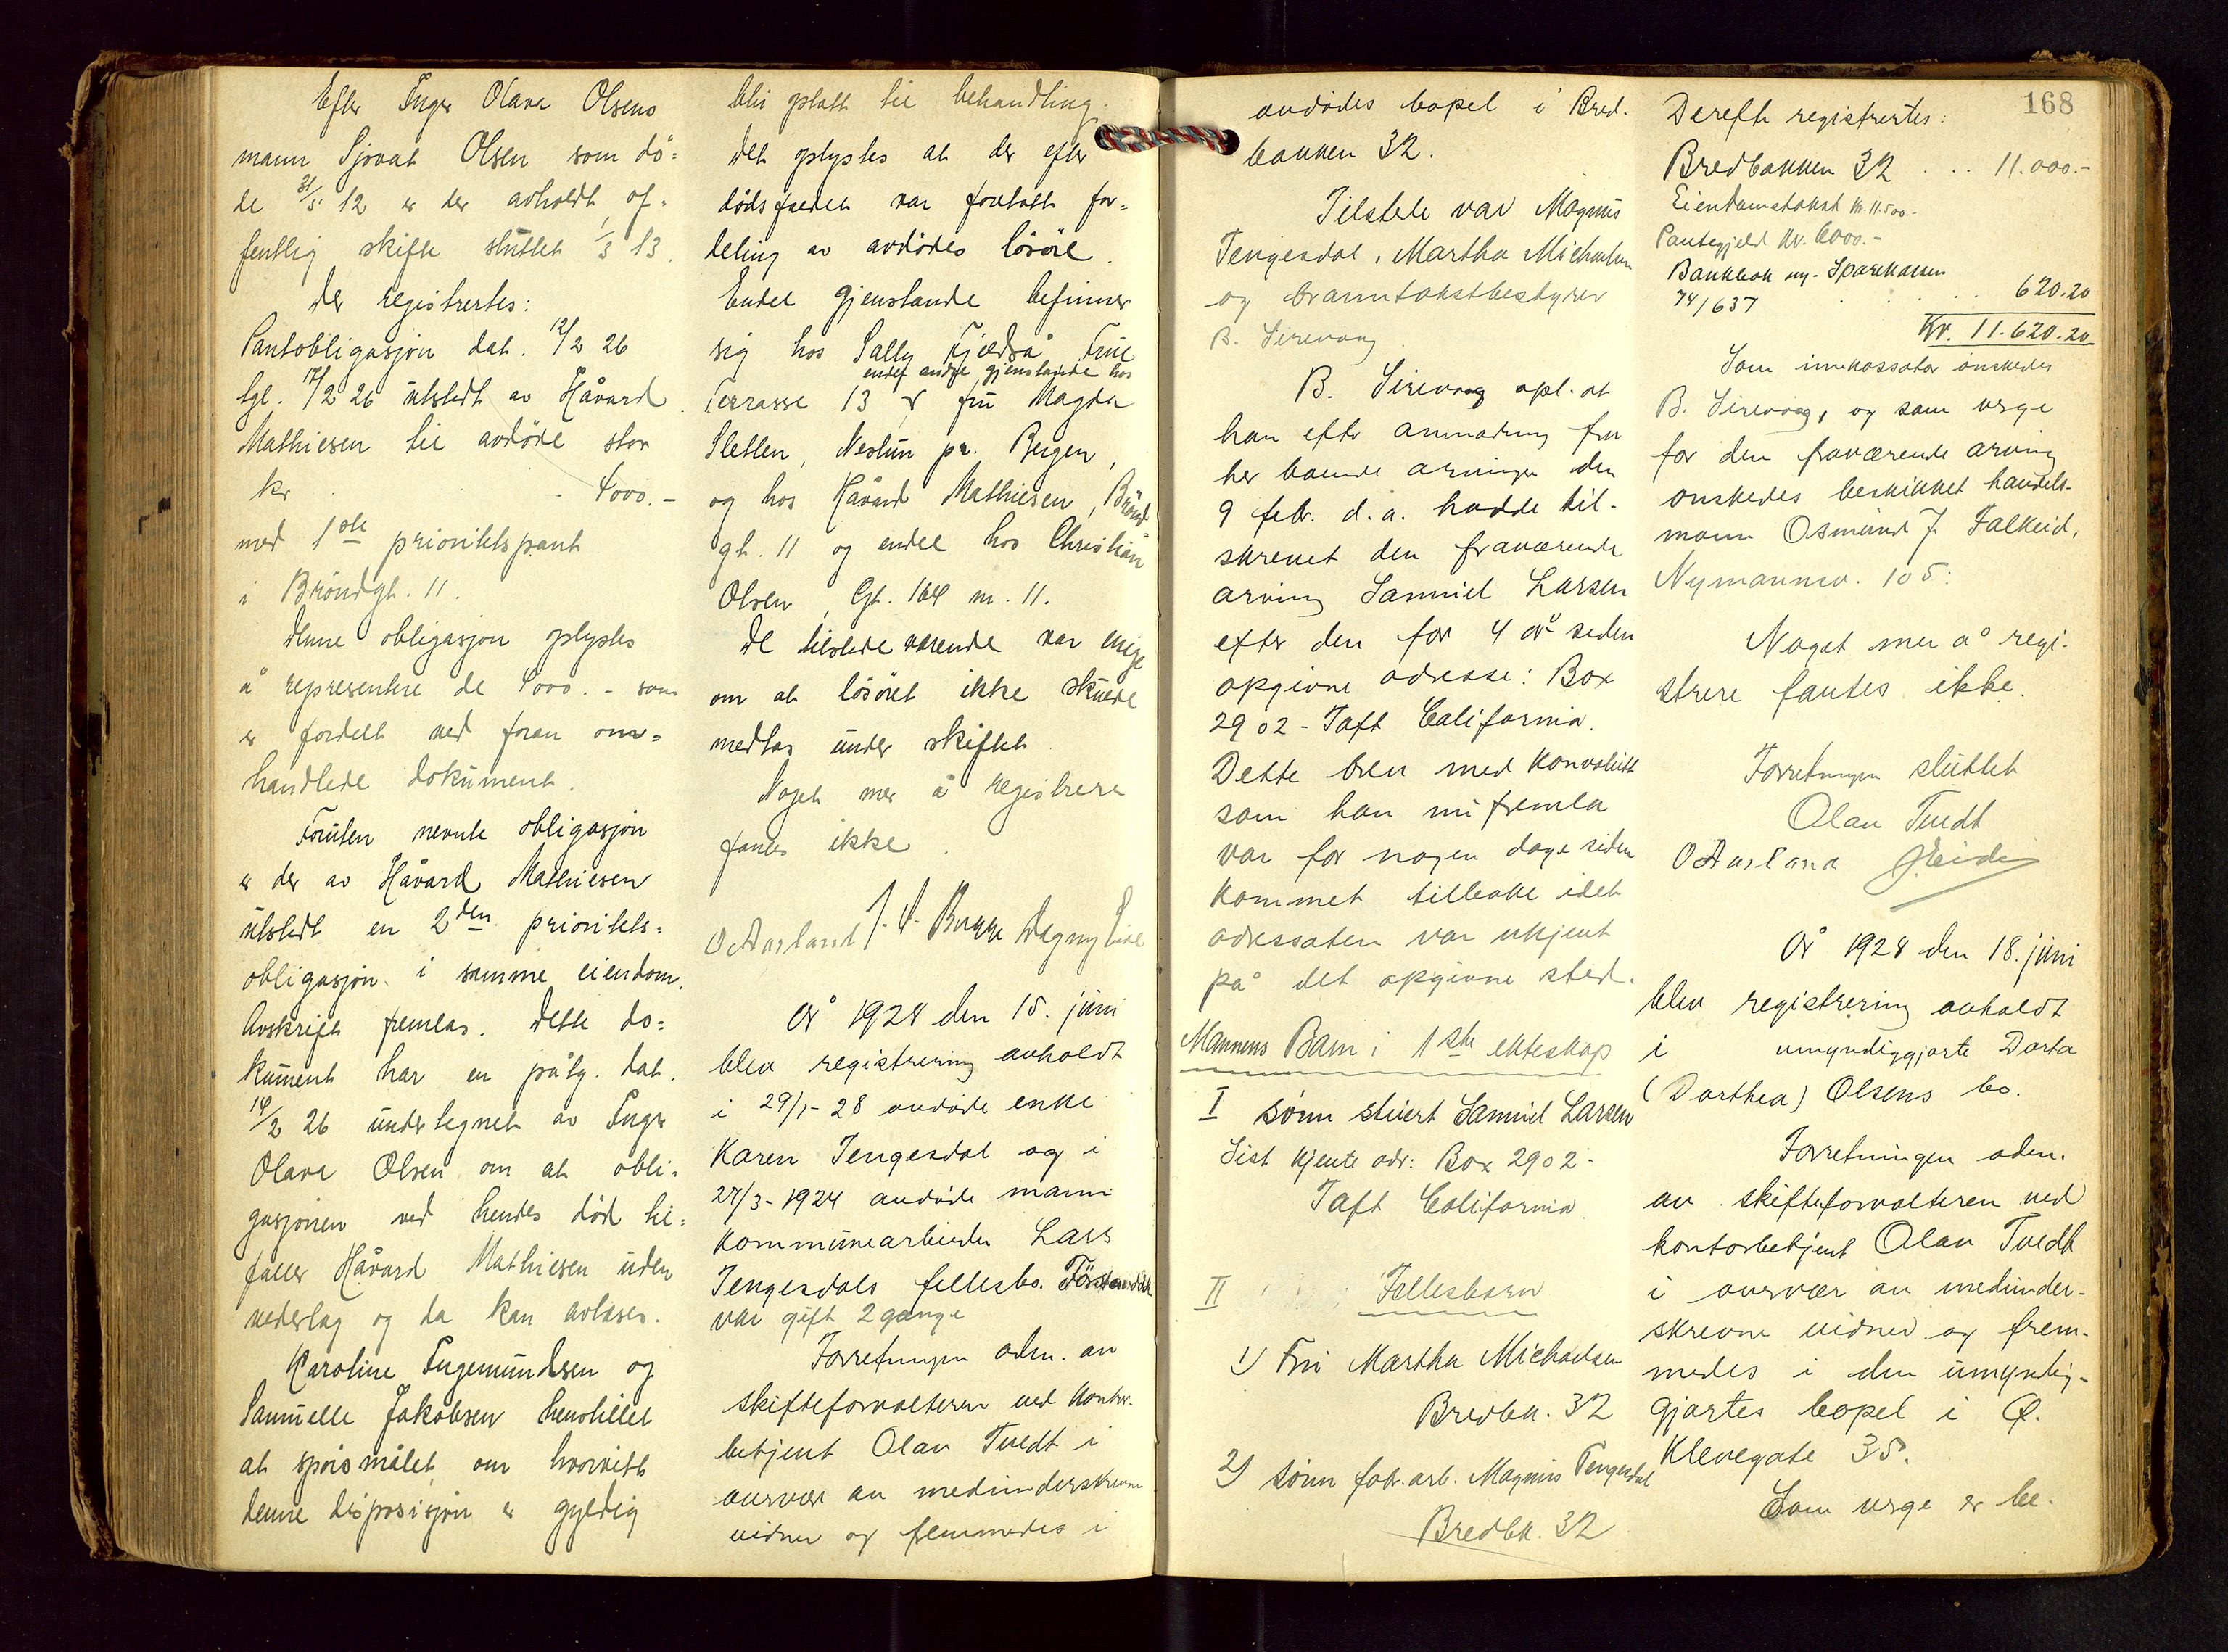 Efter Inger Olava Olsens
mann Sjovat Olsen som dö=
de 31/5 12 er der avholdt of=
fentlig skifte sluttet 1/3 13.
Der registrertes:
Pantobligasjon dat. 12/2 26
tgl. 17/2 26 utstedt av Håvard
Mathiesen til avdöde stor
kr . . . 4000.-
med 1ste prioritetspant
i Bröndgt. 11.
Denne obligasjon oplystes
å representere de 4000.- som
er fordelt ved foran om=
handlede dokument.
Foruten nevnte obligasjon
er der av Håvard Mathiesen
utstedt en 2den prioritets=
obligasjon i samme eiendom.
Avskrift fremlas. Dette do=
kument har en påtg. dat.
14/2 26 undertegnet av Inger
Olava Olsen om at obli=
gasjonen ved hendes död til=
faller Håvard Mathiesen uden
vederlag og da kan avlases.
Karoline Ingemundsen og
Samuelle Jakobsen henstillet
at spörsmålet om hvorvitt
denne disposisjon er gyldig
bli optatt til behandling.
Det oplystes at der efter
dödsfaldet var foretatt for=
deling av avdödes lösöre.
Endel gjenstande befinner
sig hos Sally Fjeldså, Frue
endel andre gjenstande hos
Terrasse 13 fru Magda
Sletten, Nestun pr. Bergen,
og hos Håvard Mathiesen, Brönd
gt. 11 og endel hos Christian
Olsen, Gt. 164 nr. 11.
De tilstedeværende var enige
om at lösöret ikke skulde
medtas under skiftet.
Noget mer å registrere
fandes ikke.
O Aarland J. Bugge Dagny Lie
År 1928 den 15. juni
blev registrering avholdt
i 29/1-28 avdöde enke
Karen Tengesdal og i
27/3-1924 avdöde mann
kommunearbeider Lars
Tengesdals fellesbo. Förstavdöde
var gift 2 gange
Forretningen adm. av
skifteforvalteren ved kontor-
betjent Olav Tvedt i
overvær av medunderskrevne
vidner og fremmedes i
168
avdödes bopel i Bred-
bakken 32.
Tilstede var Magnus
Tengesdal, Martha Michaelsen
og branntakstbestyrer
B. Sirevaag.
B. Sirevaag opl. at
han efter anmodning fra
her boende arvinger den
9 febr. d.a. hadde til-
skrevet den fraværende
arving Samuel Larsen
efter den for 4 år siden
opgivne adresse: Box
2902 - Taft California.
Dette brev med konvolutt
som han nu fremla
var for nogen dage siden
kommet tilbake idet
adressaten var ukjent
på det opgivne sted.
Mannens Barn i 1ste ekteskap
I sönn stuert Samuel Larsen
Sist kjente adr: Box 2902 -
Taft California.
II Fellesbarn
1) Fru Martha Michaelsen
Bredbk. 32
2) sönn fabr. arb. Magnus Tengesdal
Bredbk. 32
Derefter registrertes:
Bredbakken 32 . . . 11.000.-
Eiendomstakst kr. 11.500.-
Pantegjeld kr. 6000.-
Bankbok ny- Sparekassen
74/637 . . . 620.20
Kr. 11.620.20
Som innkassator önskedes
B. Sirevaag, og som verge
for den fraværende arving
önskedes beskikket handels-
mann Osmund J. Falkeid,
Nymannsv. 105.
Noget mer å regi-
strere fantes ikke.
Forretningen sluttet
Olav Tvedt
O Aarland J Eide
År 1928 den 18. juni
blev registrering avholdt
i umyndiggjorte Dorta
(Dorthea) Olsens bo.
Forretningen adm.
av skifteforvalteren ved
kontorbetjent Olav Tvedt
i overvær av medunder-
skrevne vidner og frem-
medes i den umyndig-
gjortes bopel i Ö.
Klevegate 35.
Som verge er be-